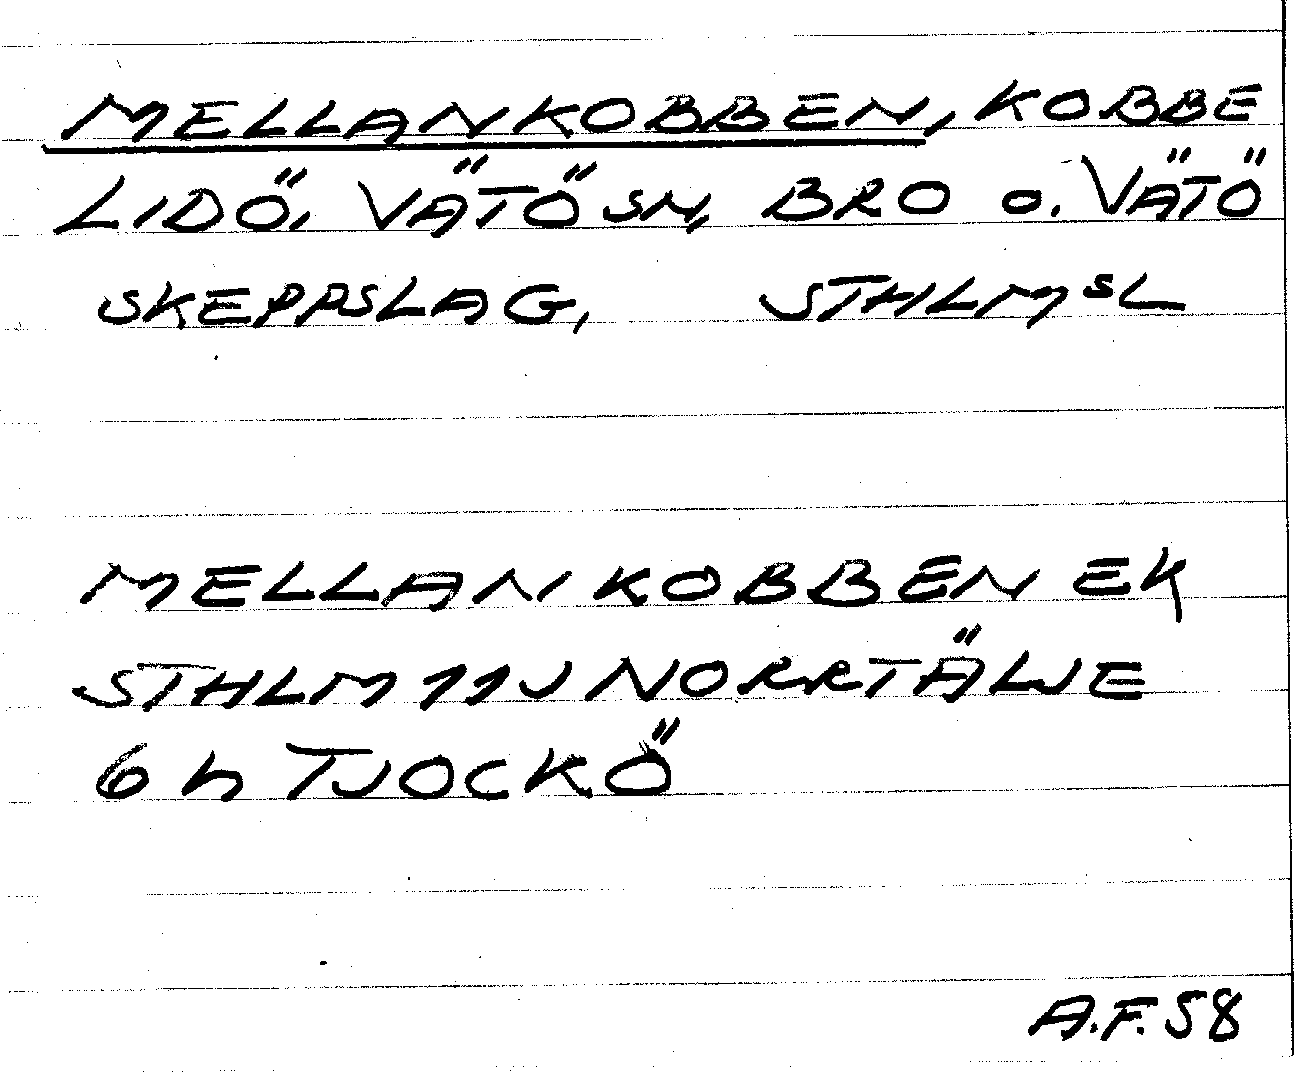 MELLANKOBBEN, KOBBE
LIDÖ, VÄTÖ SN, BRO o. VÄTÖ
SKEPPSLAG, STHLMSL
MELLANKOBBEN EK
STHLM 11J NORRTÄLJE
6h TJOCKÖ
A.F. 58